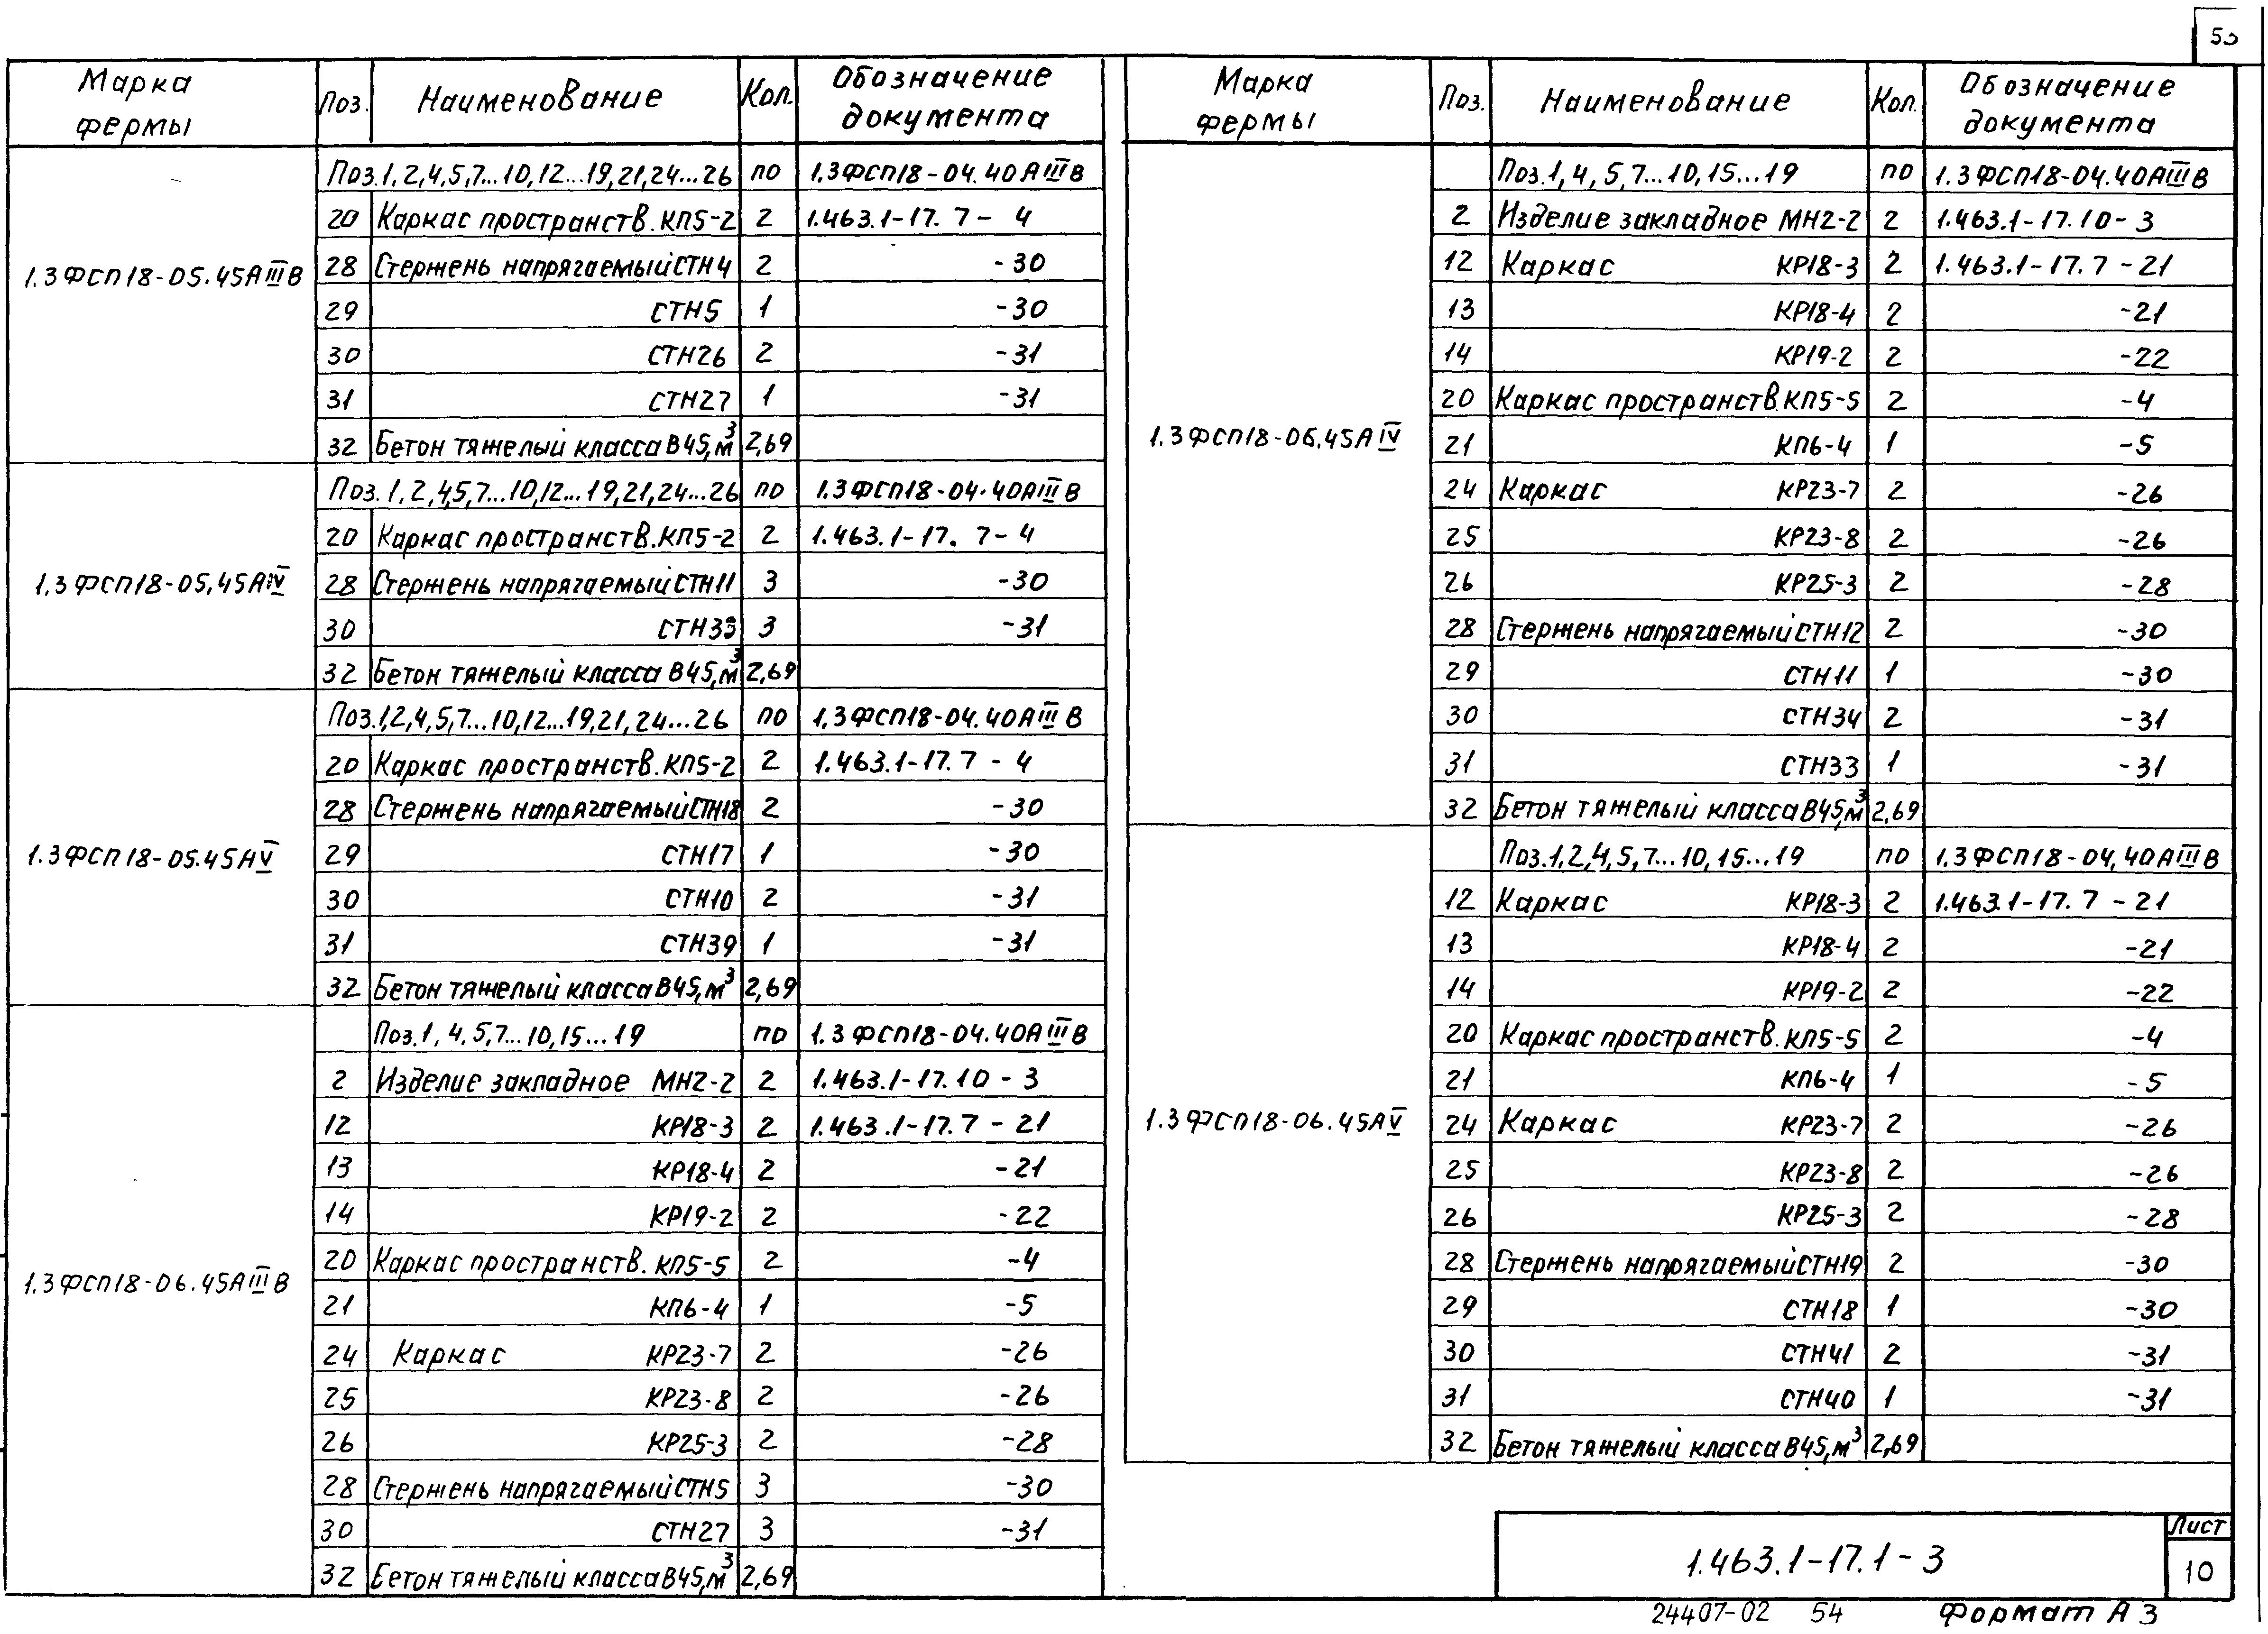 53
Марка фермы | Поз. | Наименование | Кол. | Обозначение документа
1.3ФСП18-05.45АIIIВ
Поз.1,2,4,5,7...10,12...19,21,24...26 | по | 1.3ФСП18-04.40АIIIВ
20 | Каркас пространств. КП5-2 | 2 | 1.463.1-17.7-4
28 | Стержень напрягаемый СТН4 | 2 | -30
29 | СТН5 | 1 | -30
30 | СТН26 | 2 | -31
31 | СТН27 | 1 | -31
32 | Бетон тяжелый класса В45, м³ | 2,69
1.3ФСП18-05,45АIV
Поз.1,2,4,5,7...10,12...19,21,24...26 | по | 1.3ФСП18-04.40АIIIВ
20 | Каркас пространств. КП5-2 | 2 | 1.463.1-17.7-4
28 | Стержень напрягаемый СТН11 | 3 | -30
30 | СТН33 | 3 | -31
32 | Бетон тяжелый класса В45, м³ | 2,69
1.3ФСП18-05.45АV
Поз.1,2,4,5,7...10,12...19,21,24...26 | по | 1.3ФСП18-04.40АIIIВ
20 | Каркас пространств. КП5-2 | 2 | 1.463.1-17.7-4
28 | Стержень напрягаемый СТН18 | 2 | -30
29 | СТН17 | 1 | -30
30 | СТН10 | 2 | -31
31 | СТН39 | 1 | -31
32 | Бетон тяжелый класса В45, м³ | 2,69
1.3ФСП18-06.45АIIIВ
Поз.1,4,5,7...10,15...19 | по | 1.3ФСП18-04.40АIIIВ
2 | Изделие закладное МН2-2 | 2 | 1.463.1-17.10-3
12 | КР18-3 | 2 | 1.463.1-17.7-21
13 | КР18-4 | 2 | -21
14 | КР19-2 | 2 | -22
20 | Каркас пространств. КП5-5 | 2 | -4
21 | КП6-4 | 1 | -5
24 | Каркас КР23-7 | 2 | -26
25 | КР23-8 | 2 | -26
26 | КР25-3 | 2 | -28
28 | Стержень напрягаемый СТН5 | 3 | -30
30 | СТН27 | 3 | -31
32 | Бетон тяжелый класса В45, м³ | 2,69
Марка фермы | Поз. | Наименование | Кол. | Обозначение документа
1.3ФСП18-06.45АIV
Поз.1,4,5,7...10,15...19 | по | 1.3ФСП18-04.40АIIIВ
2 | Изделие закладное МН2-2 | 2 | 1.463.1-17.10-3
12 | Каркас КР18-3 | 2 | 1.463.1-17.7-21
13 | КР18-4 | 2 | -21
14 | КР19-2 | 2 | -22
20 | Каркас пространств. КП5-5 | 2 | -4
21 | КП6-4 | 1 | -5
24 | Каркас КР23-7 | 2 | -26
25 | КР23-8 | 2 | -26
26 | КР25-3 | 2 | -28
28 | Стержень напрягаемый СТН12 | 2 | -30
29 | СТН11 | 1 | -30
30 | СТН34 | 2 | -31
31 | СТН33 | 1 | -31
32 | Бетон тяжелый класса В45, м³ | 2,69
1.3ФСП18-06.45АV
Поз.1,2,4,5,7...10,15...19 | по | 1.3ФСП18-04,40АIIIВ
12 | Каркас КР18-3 | 2 | 1.463.1-17.7-21
13 | КР18-4 | 2 | -21
14 | КР19-2 | 2 | -22
20 | Каркас пространств. КП5-5 | 2 | -4
21 | КП6-4 | 1 | -5
24 | Каркас КР23-7 | 2 | -26
25 | КР23-8 | 2 | -26
26 | КР25-3 | 2 | -28
28 | Стержень напрягаемый СТН19 | 2 | -30
29 | СТН18 | 1 | -30
30 | СТН41 | 2 | -31
31 | СТН40 | 1 | -31
32 | Бетон тяжелый класса В45, м³ | 2,69
1.463.1-17.1-3
Лист
10
24407-02 54 Формат А3